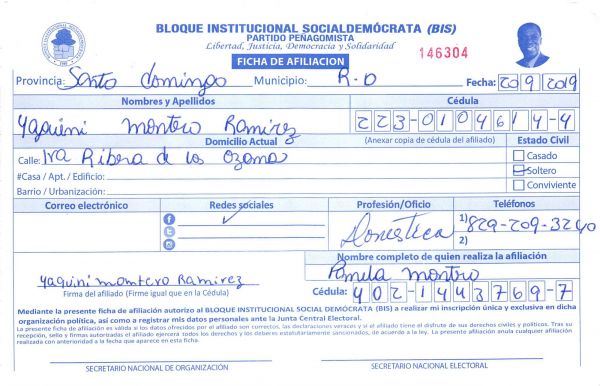 BLOQUE INSTITUCIONAL SOCIALDEMÓCRATA (BIS)
PARTIDO PEÑAGOMISTA
Libertad, Justicia, Democracia y Solidaridad
146304
FICHA DE AFILIACION
Provincia: Santo Domingo Municipio: R.D Fecha: 20 9 2019
Nombres y Apellidos Cédula
Yaquini Montero Ramirez 223-0104614-4
Domicilio Actual (Anexar copia de cédula del afiliado) Estado Civil
Calle: 1ra Ribera de los Ozama Casado
#Casa / Apt. / Edificio: Soltero
Barrio / Urbanización: Conviviente
Correo electrónico Redes sociales Profesión/Oficio Teléfonos
Domestica 1) 829-209-3240
2)
Nombre completo de quien realiza la afiliación
Yaquini montero Ramirez Pamela Montero
Firma del afiliado (Firme igual que en la Cédula) Cédula: 402-1443769-7
Mediante la presente ficha de afiliación autorizo al BLOQUE INSTITUCIONAL SOCIAL DEMÓCRATA (BIS) a realizar mi inscripción única y exclusiva en dicha
organización política, así como a registrar mis datos personales ante la Junta Central Electoral.
La presente ficha de afiliación es válida si los datos ofrecidos por el afiliado son correctos, las declaraciones veraces y si el afiliado tiene el disfrute de sus derechos civiles y políticos. Tras su
recepción, sello y firmas autorizadas el afiliado ejercerá todos los derechos y los deberes estatutariamente sancionados, de acuerdo a la ley. La presente afiliación anula cualquier afiliación
realizada con anterioridad a la fecha que aparece en esta ficha.
SECRETARIO NACIONAL DE ORGANIZACIÓN SECRETARIO NACIONAL ELECTORAL